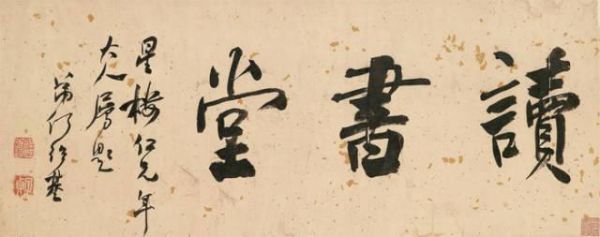 讀書堂
星樓仁兄年
大人屬題
弟何紹基